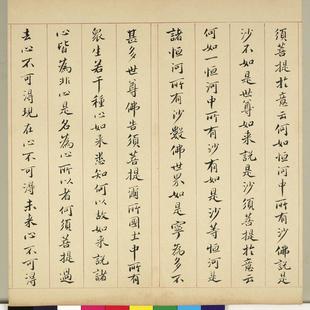 須菩提於意云何如恒河中所有沙佛說是
沙不如是世尊如來說是沙須菩提於意云
何如一恒河中所有沙有如是沙等恒河是
諸恒河所有沙數佛世界如是寧為多不
甚多世尊佛告須菩提爾所國土中所有
眾生若干種心如來悉知何以故如來說諸
心皆為非心是名為心所以者何須菩提過
去心不可得現在心不可得未來心不可得